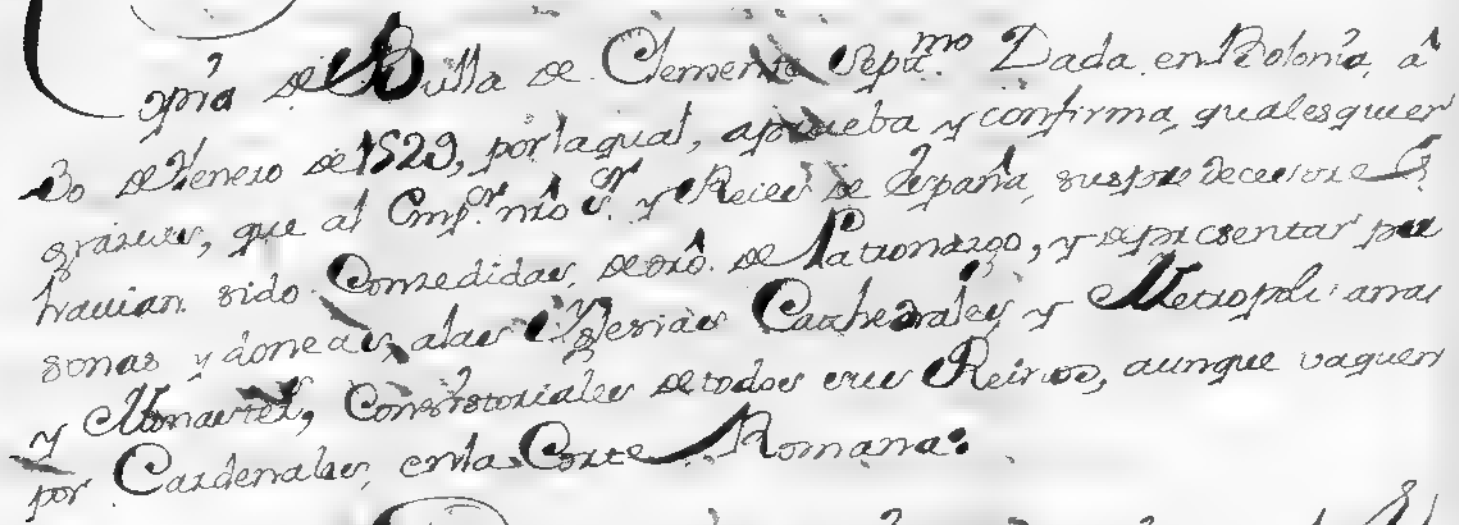 Copia de Bulla de Clemente Septi.mo Dada en Bolonia, â
30 de Henero de 1529, por la qual, aprueba y confirma, qualesquier
grâzias, que al Emp.or nrô S.or y Reies de España, sus predecesores
havian sido Conzedidas, de drô. de Patronazgo, y de presentar per
sonas ydoneas, a las Yglesias Cathedrales y Metropolitanas
y Monasters, Consistoriales de todos sus Reinos, aunque vaquen
por Cardenales, en la Corte Romana.